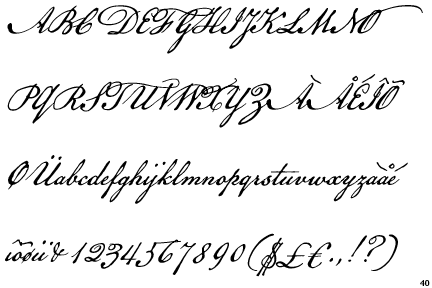 ABCDEFGHIJKLMNO
PQRSTUVWXYZÀÅÉÎÕ
ØÜabcdefghijklmnopqrstuvwxyzàåé
îõøü&1234567890($£€.,!?)
40